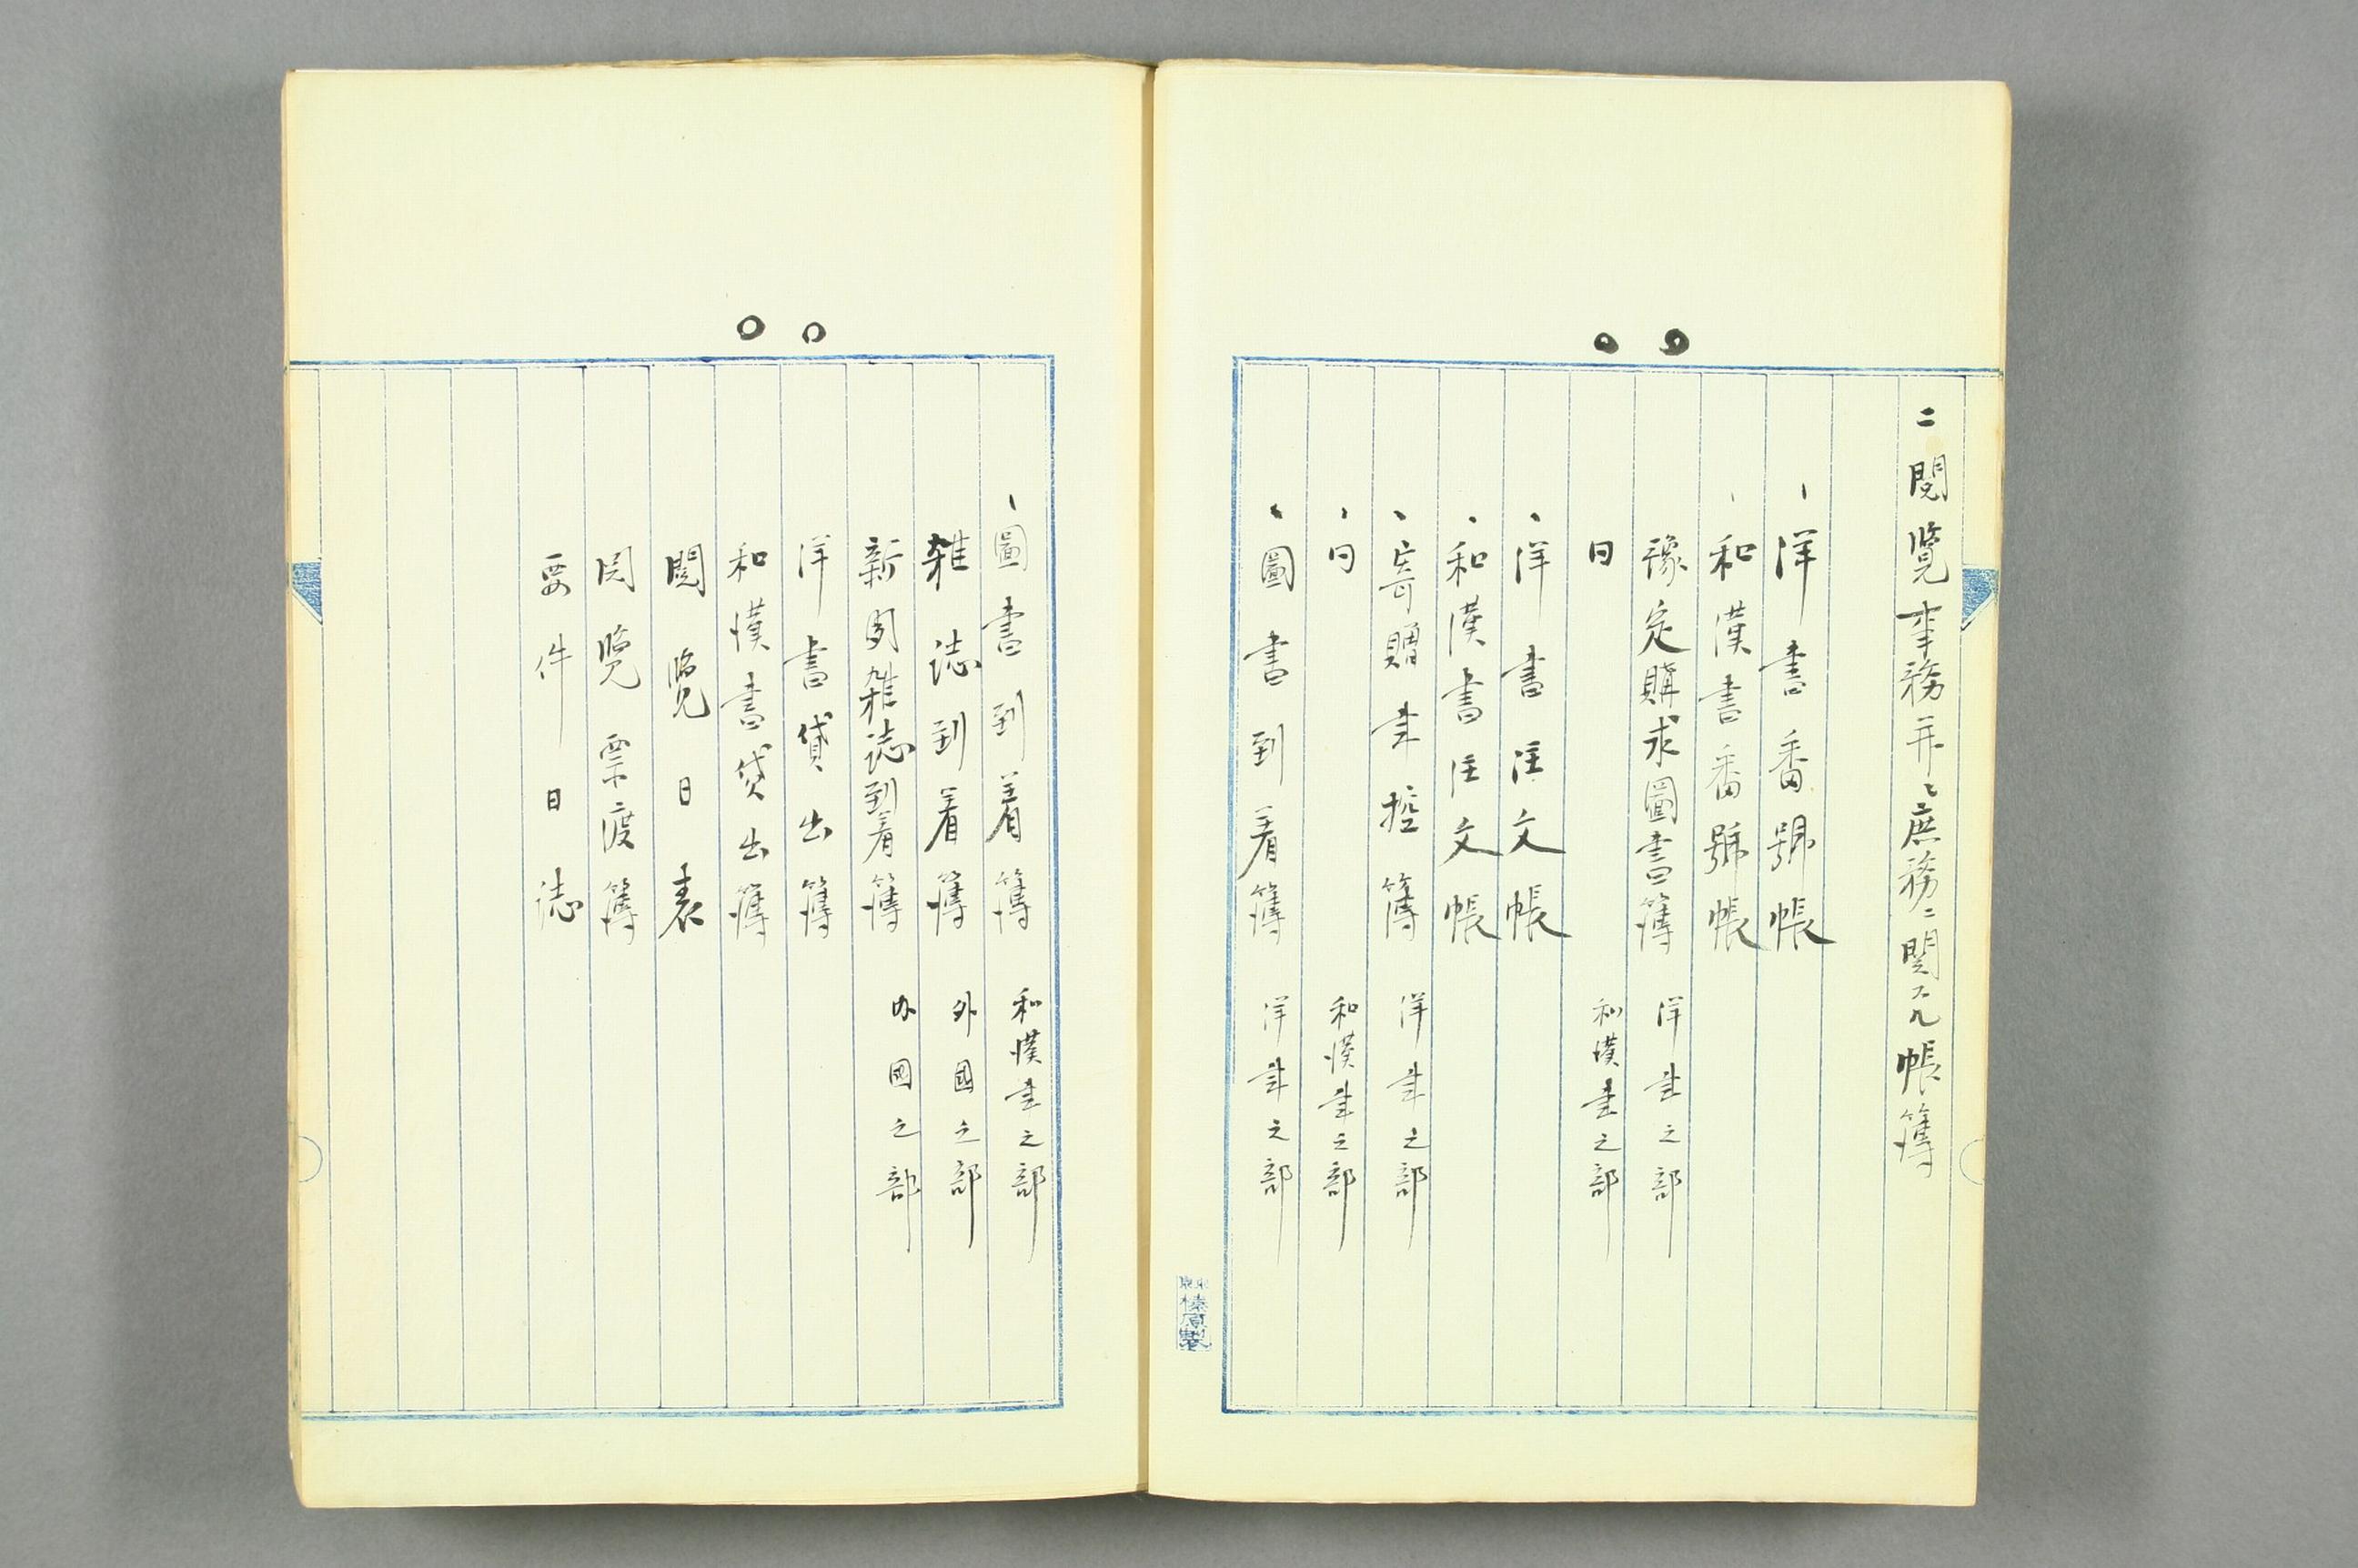 二閲覧事務并ニ庶務ニ関スル帳簿
、洋書番號帳
、和漢書番號帳
豫定購求圖書簿 洋書之部
同 和漢書之部
、洋書注文帳
、和漢書注文帳
、寄贈書控簿 洋書之部
、同 和漢書之部
、圖書到着簿 洋書之部
榛原製
、圖書到着簿 和漢書之部
雑誌到着簿 外國之部
新聞雑誌到着簿 内國之部
洋書貸出簿
和漢書貸出簿
閲覧日表
閲覧票渡簿
要件日誌